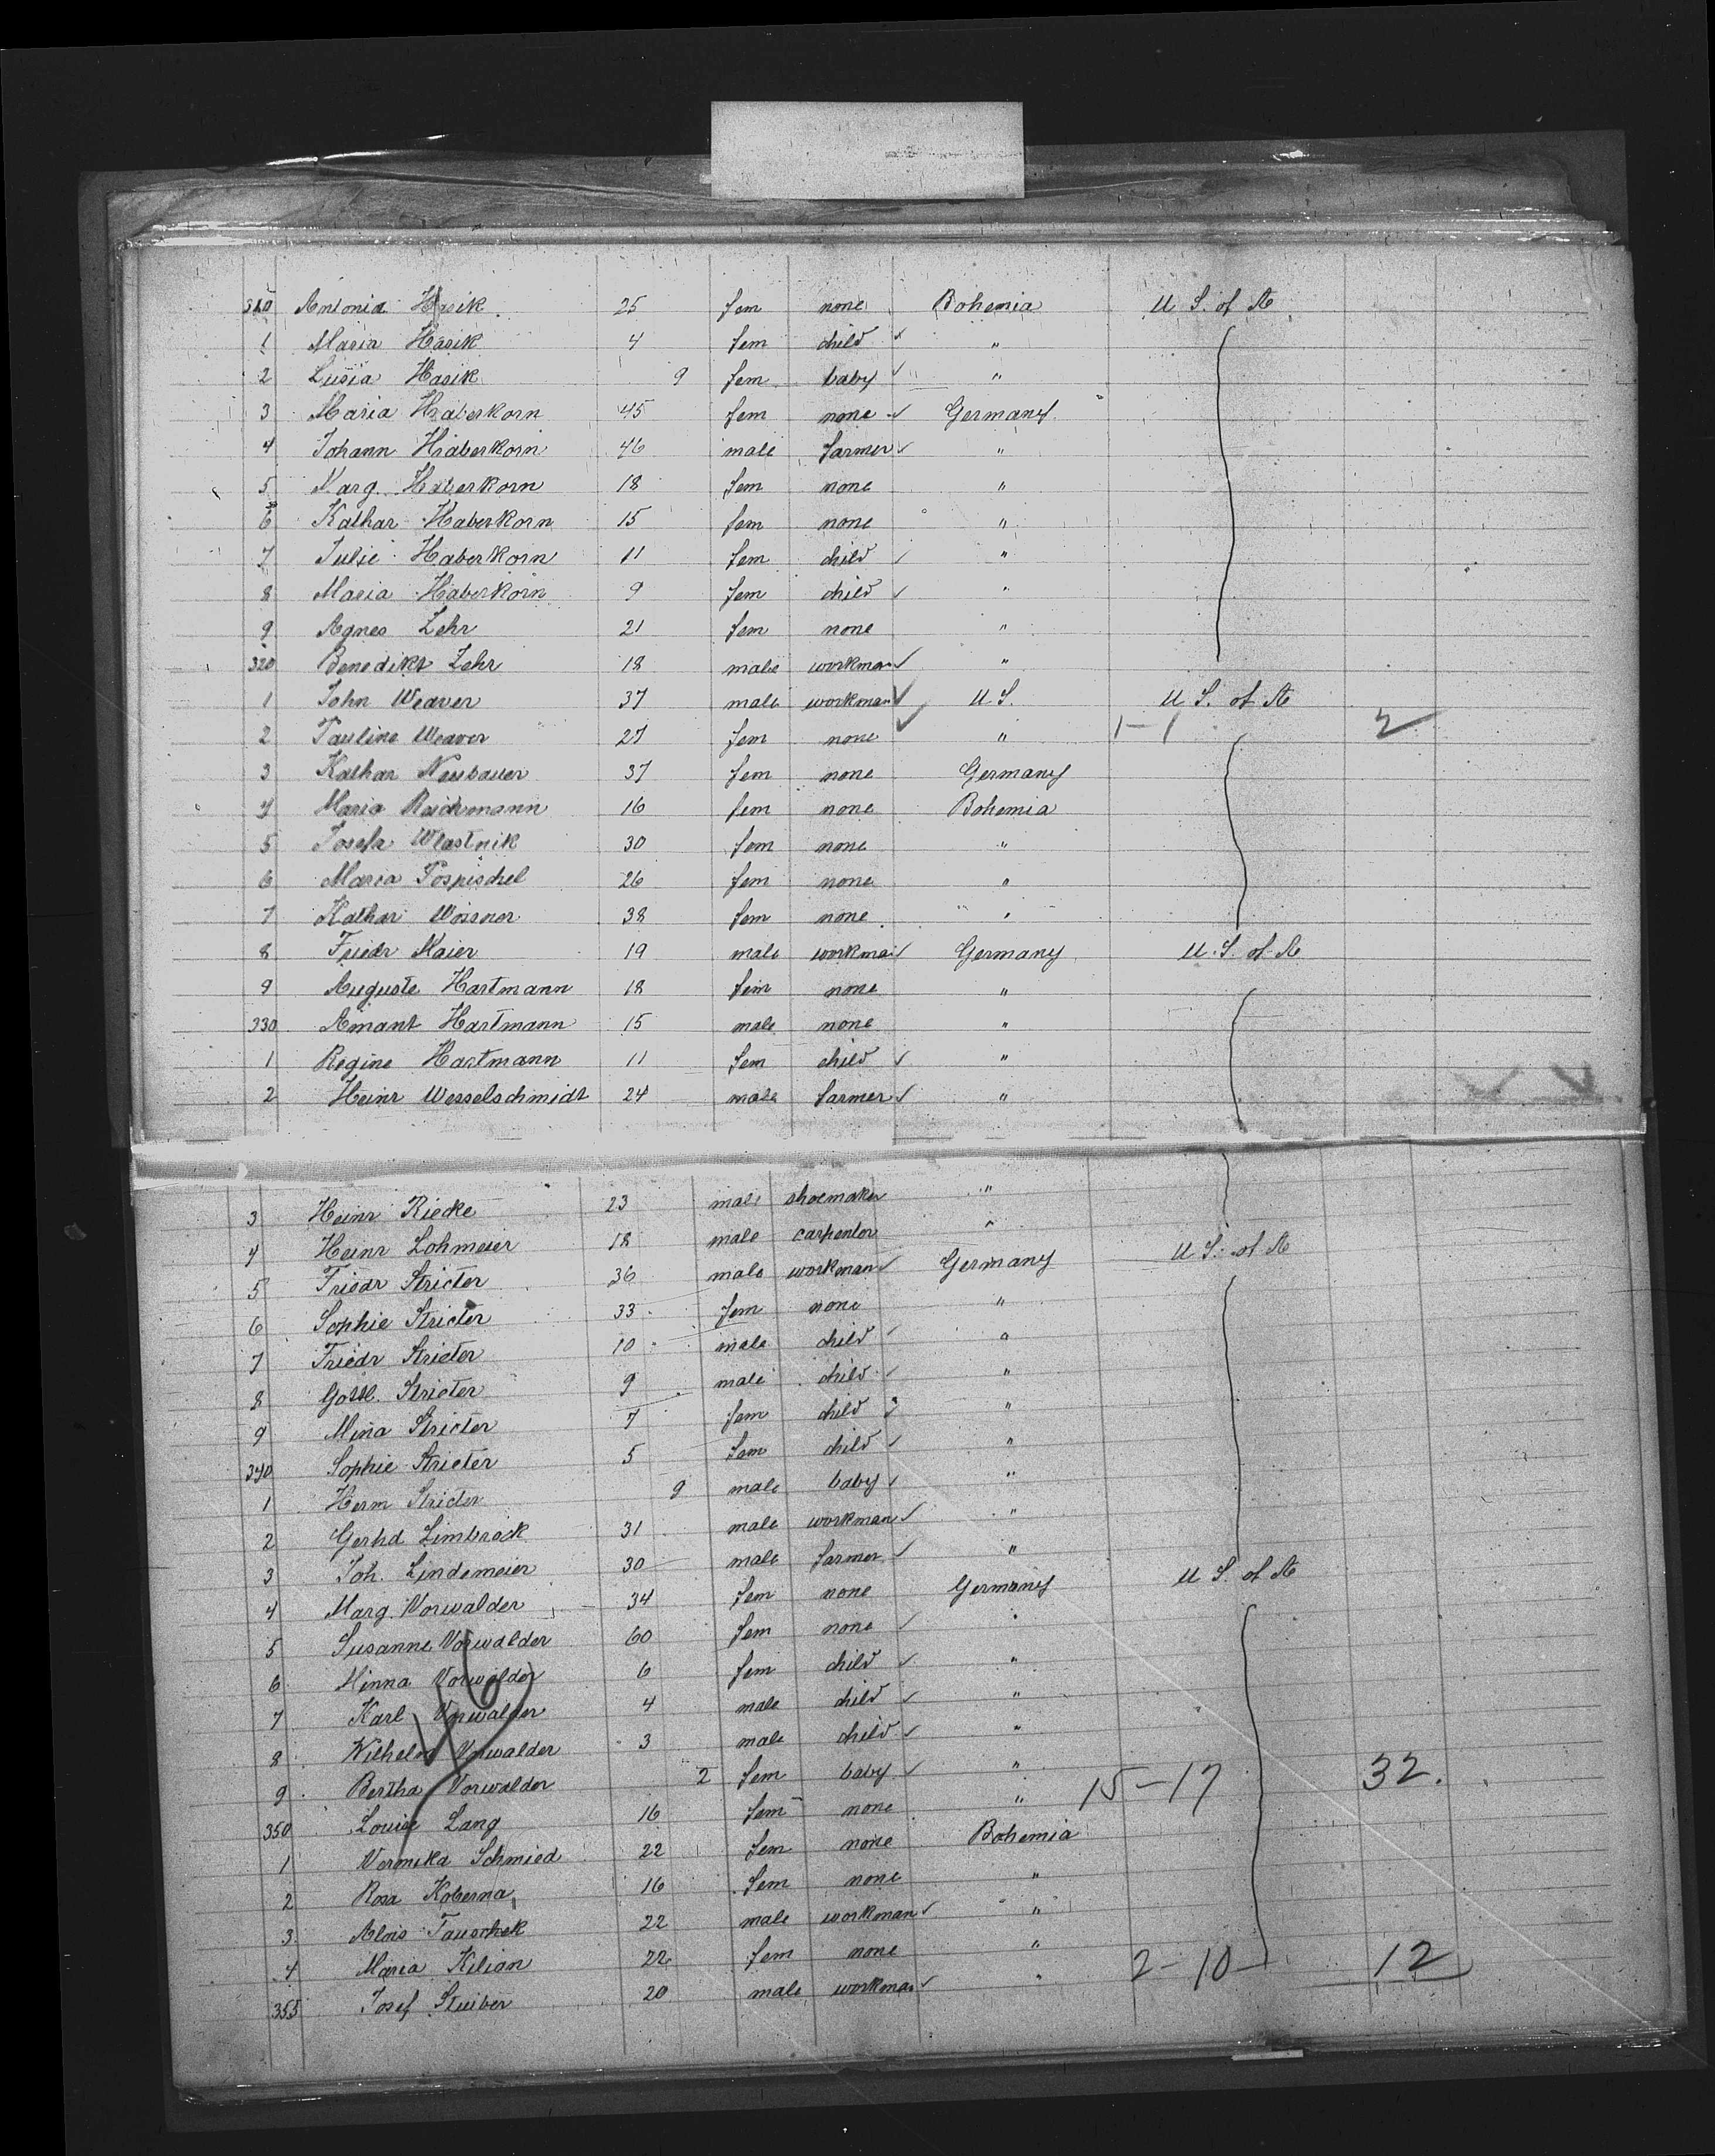 310 Antonia Hasik 25 fem none Bohemia U S. of A
1 Maria Hasik 4 fem child ✓ "
2 Lusia Hasik 9 fem baby ✓ "
3 Maria Haberkorn 45 fem none ✓ Germany
4 Johann Haberkorn 46 male farmer ✓ "
5 Marg. Haberkorn 18 fem none "
6 Kathar Haberkorn 15 fem none "
7 Julie Haberkorn 11 fem child ✓ "
8 Maria Haberkorn 9 fem child ✓ "
9 Agnes Lehr 21 fem none "
320 Benedikt Lehr 18 male workman ✓ "
1 John Weaver 37 male workman ✓ U.S. U S. of A
2 Pauline Weaver 27 fem none ✓ " 1-1 2
3 Kathar Neubauer 37 fem none Germany
4 Maria 16 fem none Bohemia
5 Josefa Wlastnik 30 fem none "
6 Maria Pospischel 26 fem none "
7 Kathar 38 fem none "
8 Friedr Maier 19 male workman ✓ Germany U.S. of A
9 Auguste Hartmann 18 fem none "
330 Amant Hartmann 15 male none "
1 Regine Hartmann 11 fem child ✓ "
2 Heinr Wesselschmidt 24 male farmer ✓ "
3 Heinr Riecke 23 male shoemaker "
4 Heinr Lohmeier 18 male carpenter "
5 Friedr Stricter 36 male workman ✓ Germany U S. of A
6 Sophie Stricter 33 fem none "
7 Friedr Stricter 10 male child ✓ "
8 Gottl. Stricter 9 male child ✓ "
9 Mina Stricter 7 fem child ✓ "
340 Sophie Stricter 5 fem child ✓ "
1 Herm Stricter 9 male baby ✓ "
2 Gerhd Limbrock 31 male workman ✓ "
3 Joh. Lindemeier 30 male farmer ✓ "
4 Marg. Vorwalder 34 fem none Germany U S. of A
5 Susanne Vorwalder 60 fem none ✓ "
6 Minna Vorwalder 6 fem child ✓ "
7 Karl Vorwalder 4 male child ✓ "
8 Wilhelm Vorwalder 3 male child ✓ "
9 Bertha Vorwalder 2 fem baby ✓ "
350 Louise Lang 16 fem none " 15-17 32.
1 Veronika Schmied 22 fem none Bohemia
2 Rosa Koberna 16 fem none "
3 Alois Tauschek 22 male workman ✓ "
4 Maria Kilian 22 fem none "
355 Josef Stuiber 20 male workman ✓ " 2-10- 12